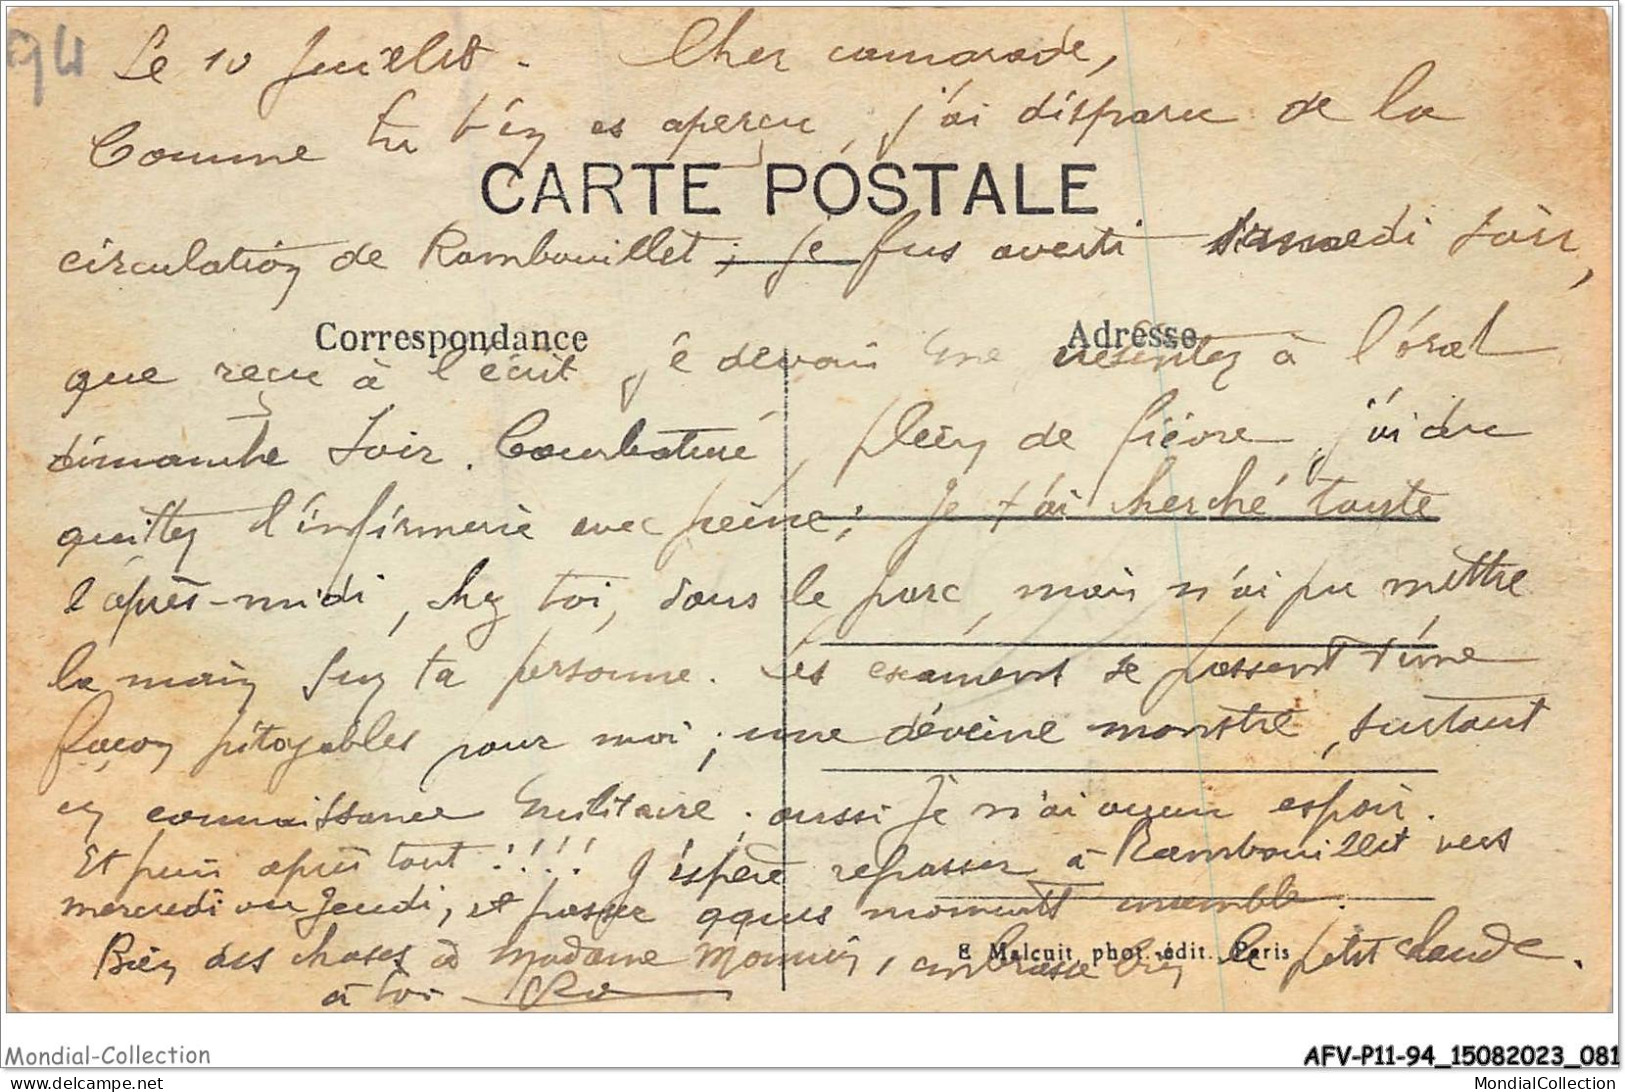 94
Le 10 Juillet. Cher camarade,
Comme tu t'en es aperçu, j'ai disparu de la
CARTE POSTALE
circulation de Rambouillet; je fus averti samedi soir,
Correspondance
Adresse
que reçu à l'écrit je devais me présenter à l'oral
dimanche soir. Courbaturé, plein de fièvre j'ai du
quitter l'infirmerie avec peine; Je t'ai cherché toute
l'après-midi, chez toi, dans le parc, mais n'ai pu mettre
la main sur ta personne. Les examens se passent d'une
façon pitoyables pour moi; une déveine monstre, surtout
en connaissance militaire; aussi je n'ai aucun espoir.
Et puis après tout !!!! J'espère repasser à Rambouillet vers
mercredi ou Jeudi, et passer qques moments ensemble.
Bien des choses à Madame, embrasse bien le petit claude.
E Malcuit phot.-édit. Paris
à toi
Mondial-Collection
AFV-P11-94_15082023_081
www.mondialcollection.delcampe.net
MondialCollection